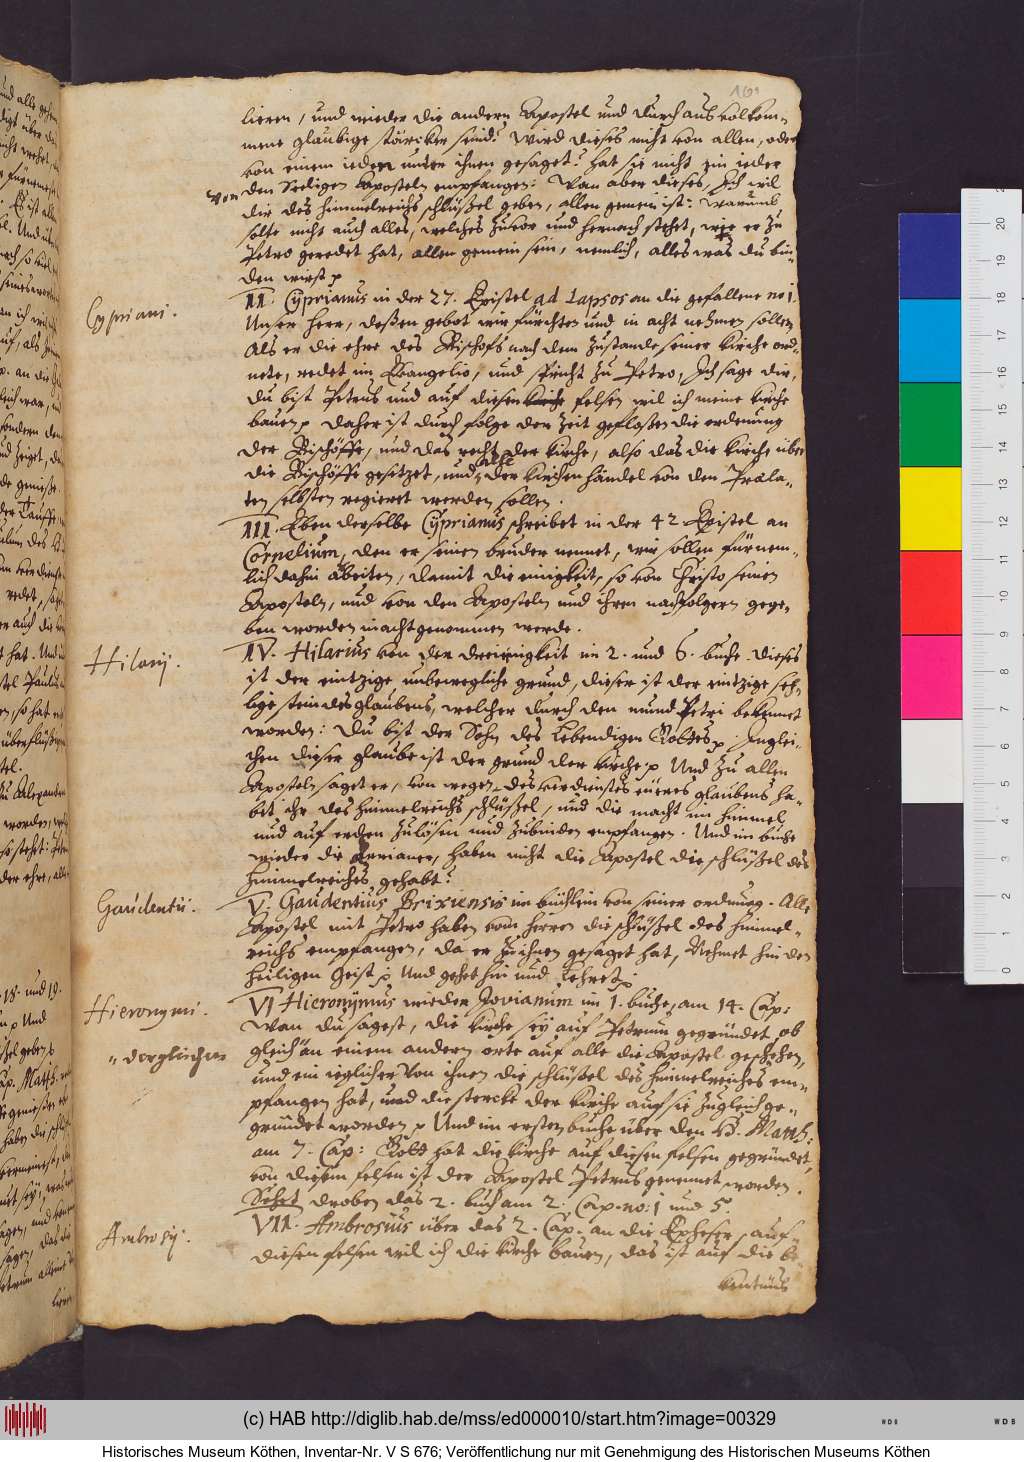 169
lieren, und wieder die andern Apostel und durch aus volkom-
mene gläubige stärcker seind? Wird dieses nicht von allen, oder
von einem ieden unter ihnen gesaget? hat sie nicht ein ieder
von
den Seeligen Aposteln empfangen: Wan aber dieses, Ich wil
dir des himmelreichs schlüßel geben, allen gemein ist: warumb
solte nicht auch alles, welches zuvor und hernach stehet, wie er zu
Petro geredet hat, allen gemein sein, nemlich, alles was du bin-
den wirst p
Cypriani.
II. Cyprianus in der 27. Epistel ad Lapsos an die gefallene no 1.
Unser Herr, deßen gebot wir fürchten und in acht nehmen sollen
Als er die ehre des Bischofs nach dem zustande seiner kirche ord-
nete, redet im Evangelio, und spricht zu Petro, Ich sage dir,
du bist Petrus und auf diesen felsen wil ich meine kirche
bauen p daher ist durch folge der zeit gefloßen die ordenung
der Bischöffe, und das recht der kirche, also das die kirche über
alle
die Bischöffe gesitzet, und der kirchen händel von den Præla-
ten selbsten regieret werden sollen.
III. Eben derselbe Cyprianus schreibet in der 42 Epistel an
Cornelium, den er seinen bruder nennet, wir sollen fürnem-
lich dahin arbeiten, damit die einigkeit, so von Christo seinen
Aposteln, und von den Aposteln und ihren nachfolgern gege-
ben worden in acht genommen werde.
Hilarij.
IV. Hilarius von der dreieinigkeit im 2. und 6. buche. Dieses
ist der eintzige unbewegliche grund, dieser ist der eintzige seh-
lige stein des glaubens, welcher durch den mund Petri bekennet
worden: Du bist der Sohn des Lebendigen Gottes p. Inglei-
chen dieser glaube ist der grund der kirche p Und zu allen
Aposteln saget er, von wegen des verdienstes eueres glaubens ha-
bit ihr des himmelreichs schlüßel, und die macht im himmel
und auf erden zulösen und zubinden empfangen. Und im buche
wieder die Arrianer, haben nicht die Apostel die schlüßel des
himmelreiches gehabt?
Gaudentii.
V. Gaudentius Brixiensis im büchlein von seiner ordnung. Alle
Apostel mit Petro haben vom herren die schlüßel des himmel-
reichs empfangen, da er zu ihnen gesaget hat, Nehmet hin den
heiligen Geist p Und gehet hin und Lehret p
Hieronymi.
VI Hieronymus wieder Jovianum im 1. buche, am 14. Cap:
Wan du sagest, die kirche sey auf Petrum gegründet, ob
" dergleichen
gleich an einem andern orte auf alle die Apostel geschehen,
und ein ieglicher von ihnen die schlüßel des himmelreiches em-
pfangen hat, und die stercke der kirche auf sie zugleich ge-
gründet worden p Und im ersten buche über den H. Matth:
am 7. Cap: Gott hat die kirche auf diesen felsen gegründet,
von diesem felsen ist der Apostel Petrus genennet worden.
Sehet droben das 2. buch am 2. Cap. no: 1 und 5.
Ambrosij.
VII. Ambrosius über das 2. Cap. an die Epheser, auf-
diesen felsen wil ich die kirche bauen, das ist auf die be-
kentnüs
(c) HAB http://diglib.hab.de/mss/ed000010/start.htm?image=00329
Historisches Museum Köthen, Inventar-Nr. V S 676; Veröffentlichung nur mit Genehmigung des Historischen Museums Köthen